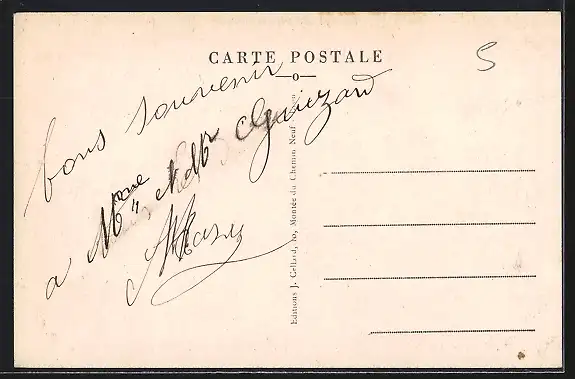 CARTE POSTALE
5
bons souvenir
a Mme Guezard
Editions J. Cellard, 10, Montée du Chemin Neuf